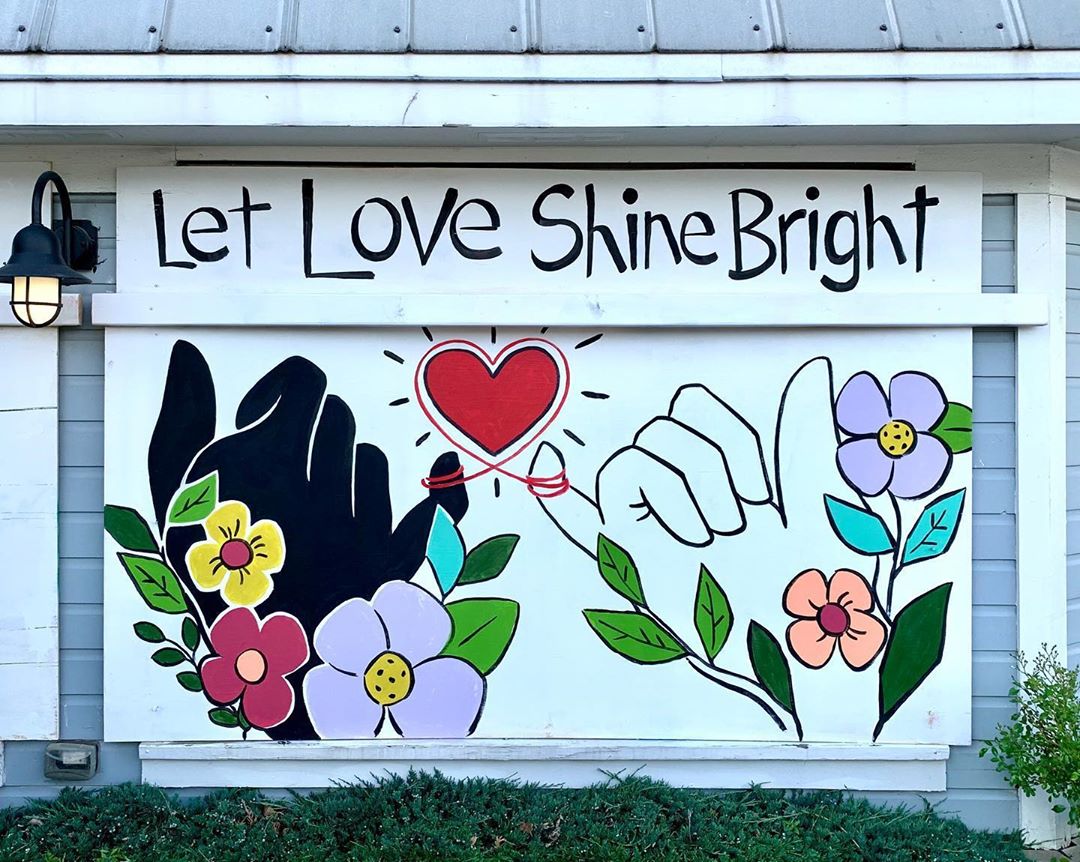 Let Love Shine Bright